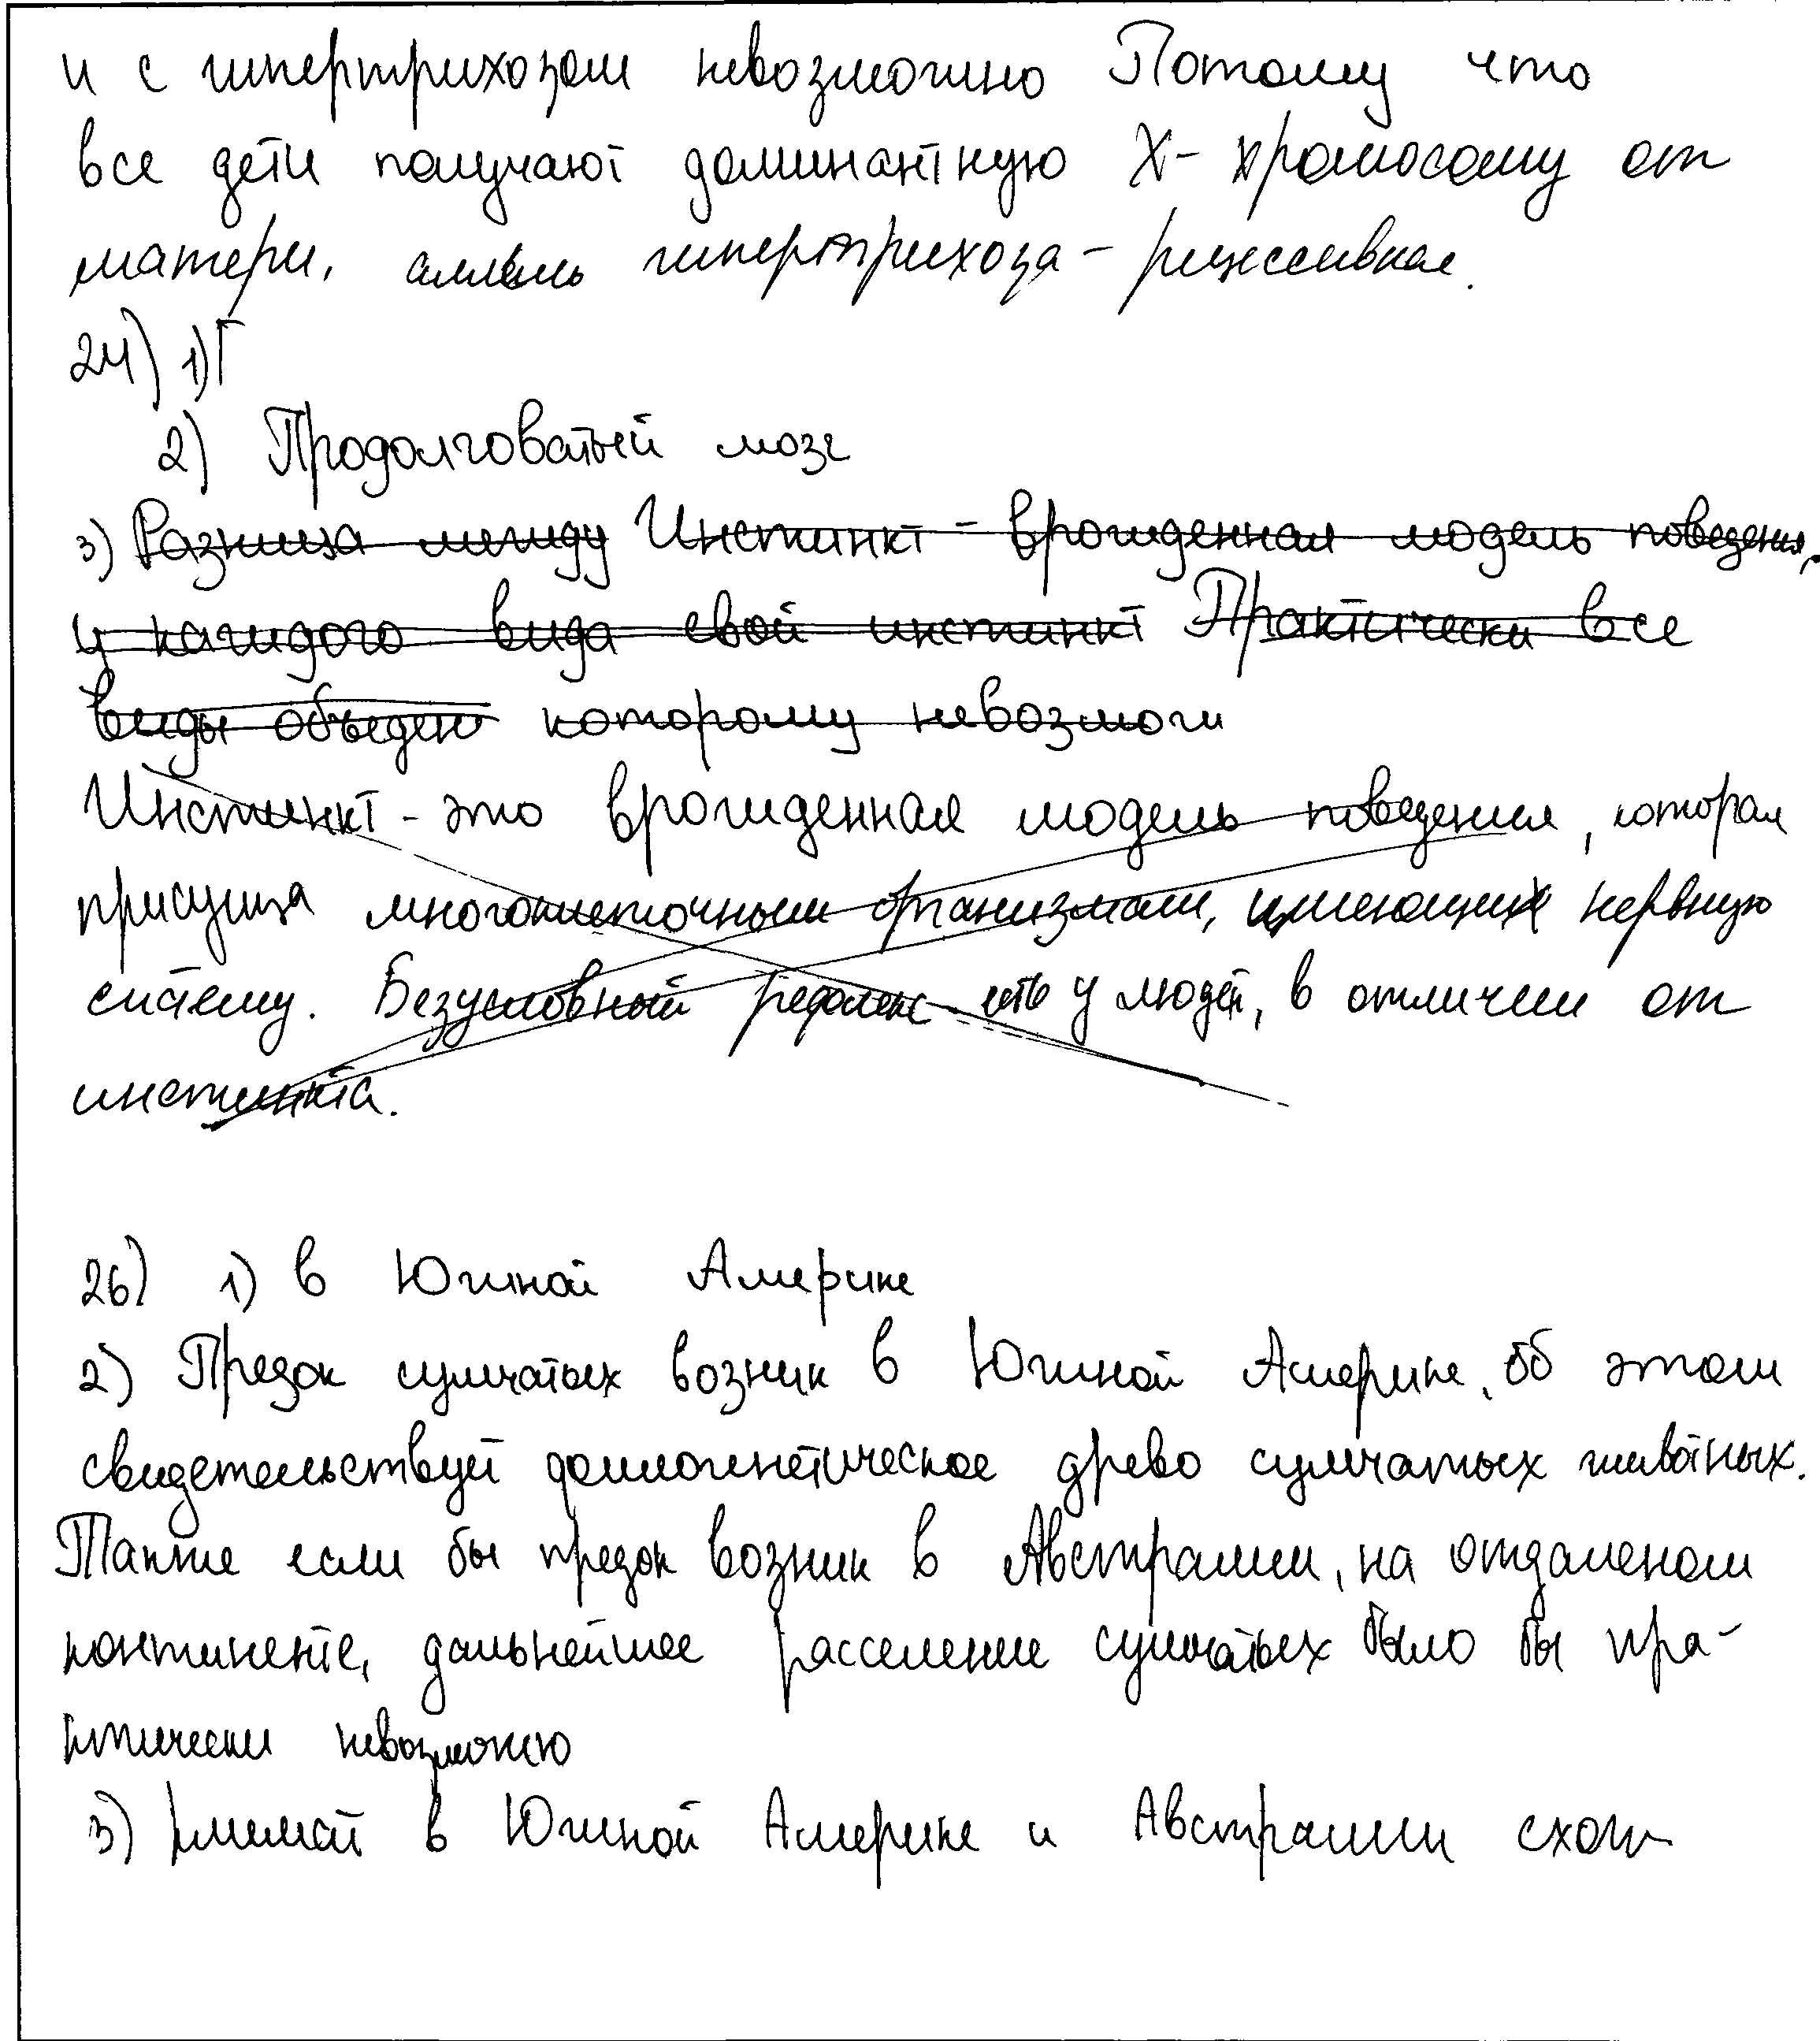 и с гипертрихозом невозможно Потому что
все дети получают доминантную X-хромосому от
матери, аллель гипертрихоза - рецессивная.
24) 1) Г
2) Продолговатый мозг
3) Разница между Инстинкт - врожденная модель поведения,
у каждого вида свой инстинкт Практически все
виды объеден которому невозможн
Инстинкт - это врожденная модель поведения, которая
присуща многоклеточным организмам, имеющих нервную
систему. Безусловный рефлекс есть у людей, в отличии от
инстинкта.
26) 1) в Южной Америке
2) Предок сумчатых возник в Южной Америке, об этом
свидетельствует филогенетическое древо сумчатых животных.
Также если бы предок возник в Австралии, на отдаленом
континенте, дальнейшее расселение сумчатых было бы пра-
ктически невозможно
3) климат в Южной Америке и Австралии схож